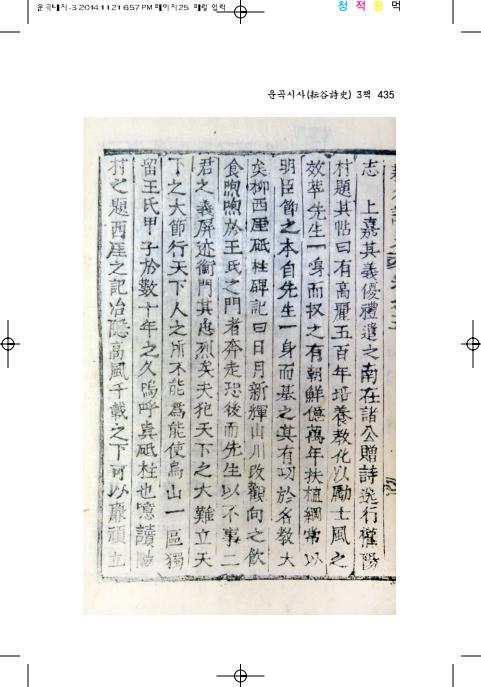 운곡내지-3 2014.11.21 6:57 PM 페이지25 매립 입력
청 적 황 먹
운곡시사(耘谷詩史) 3책 435
志 上嘉其義優禮遣之南在諸公贈詩送行權陽
村題其帖曰有高麗五百年培養敎化以勵士風之
效萃先生一身而收之有朝鮮億萬年扶植綱常以
明臣節之本自先生一身而基之其有功於名敎大
矣柳西厓砥柱碑記曰日月新輝山川改觀向之飮
食喣喣於王氏之門者奔走恐後而先生以不事二
君之義屛迹衡門其忠烈矣夫抱天下之大難立天
下之大節行天下人之所不能爲能使烏山一區獨
留王氏甲子於數十年之久嗚呼眞砥柱也噫讀陽
村之題西厓之記冶隱高風千載之下可以廉頑立